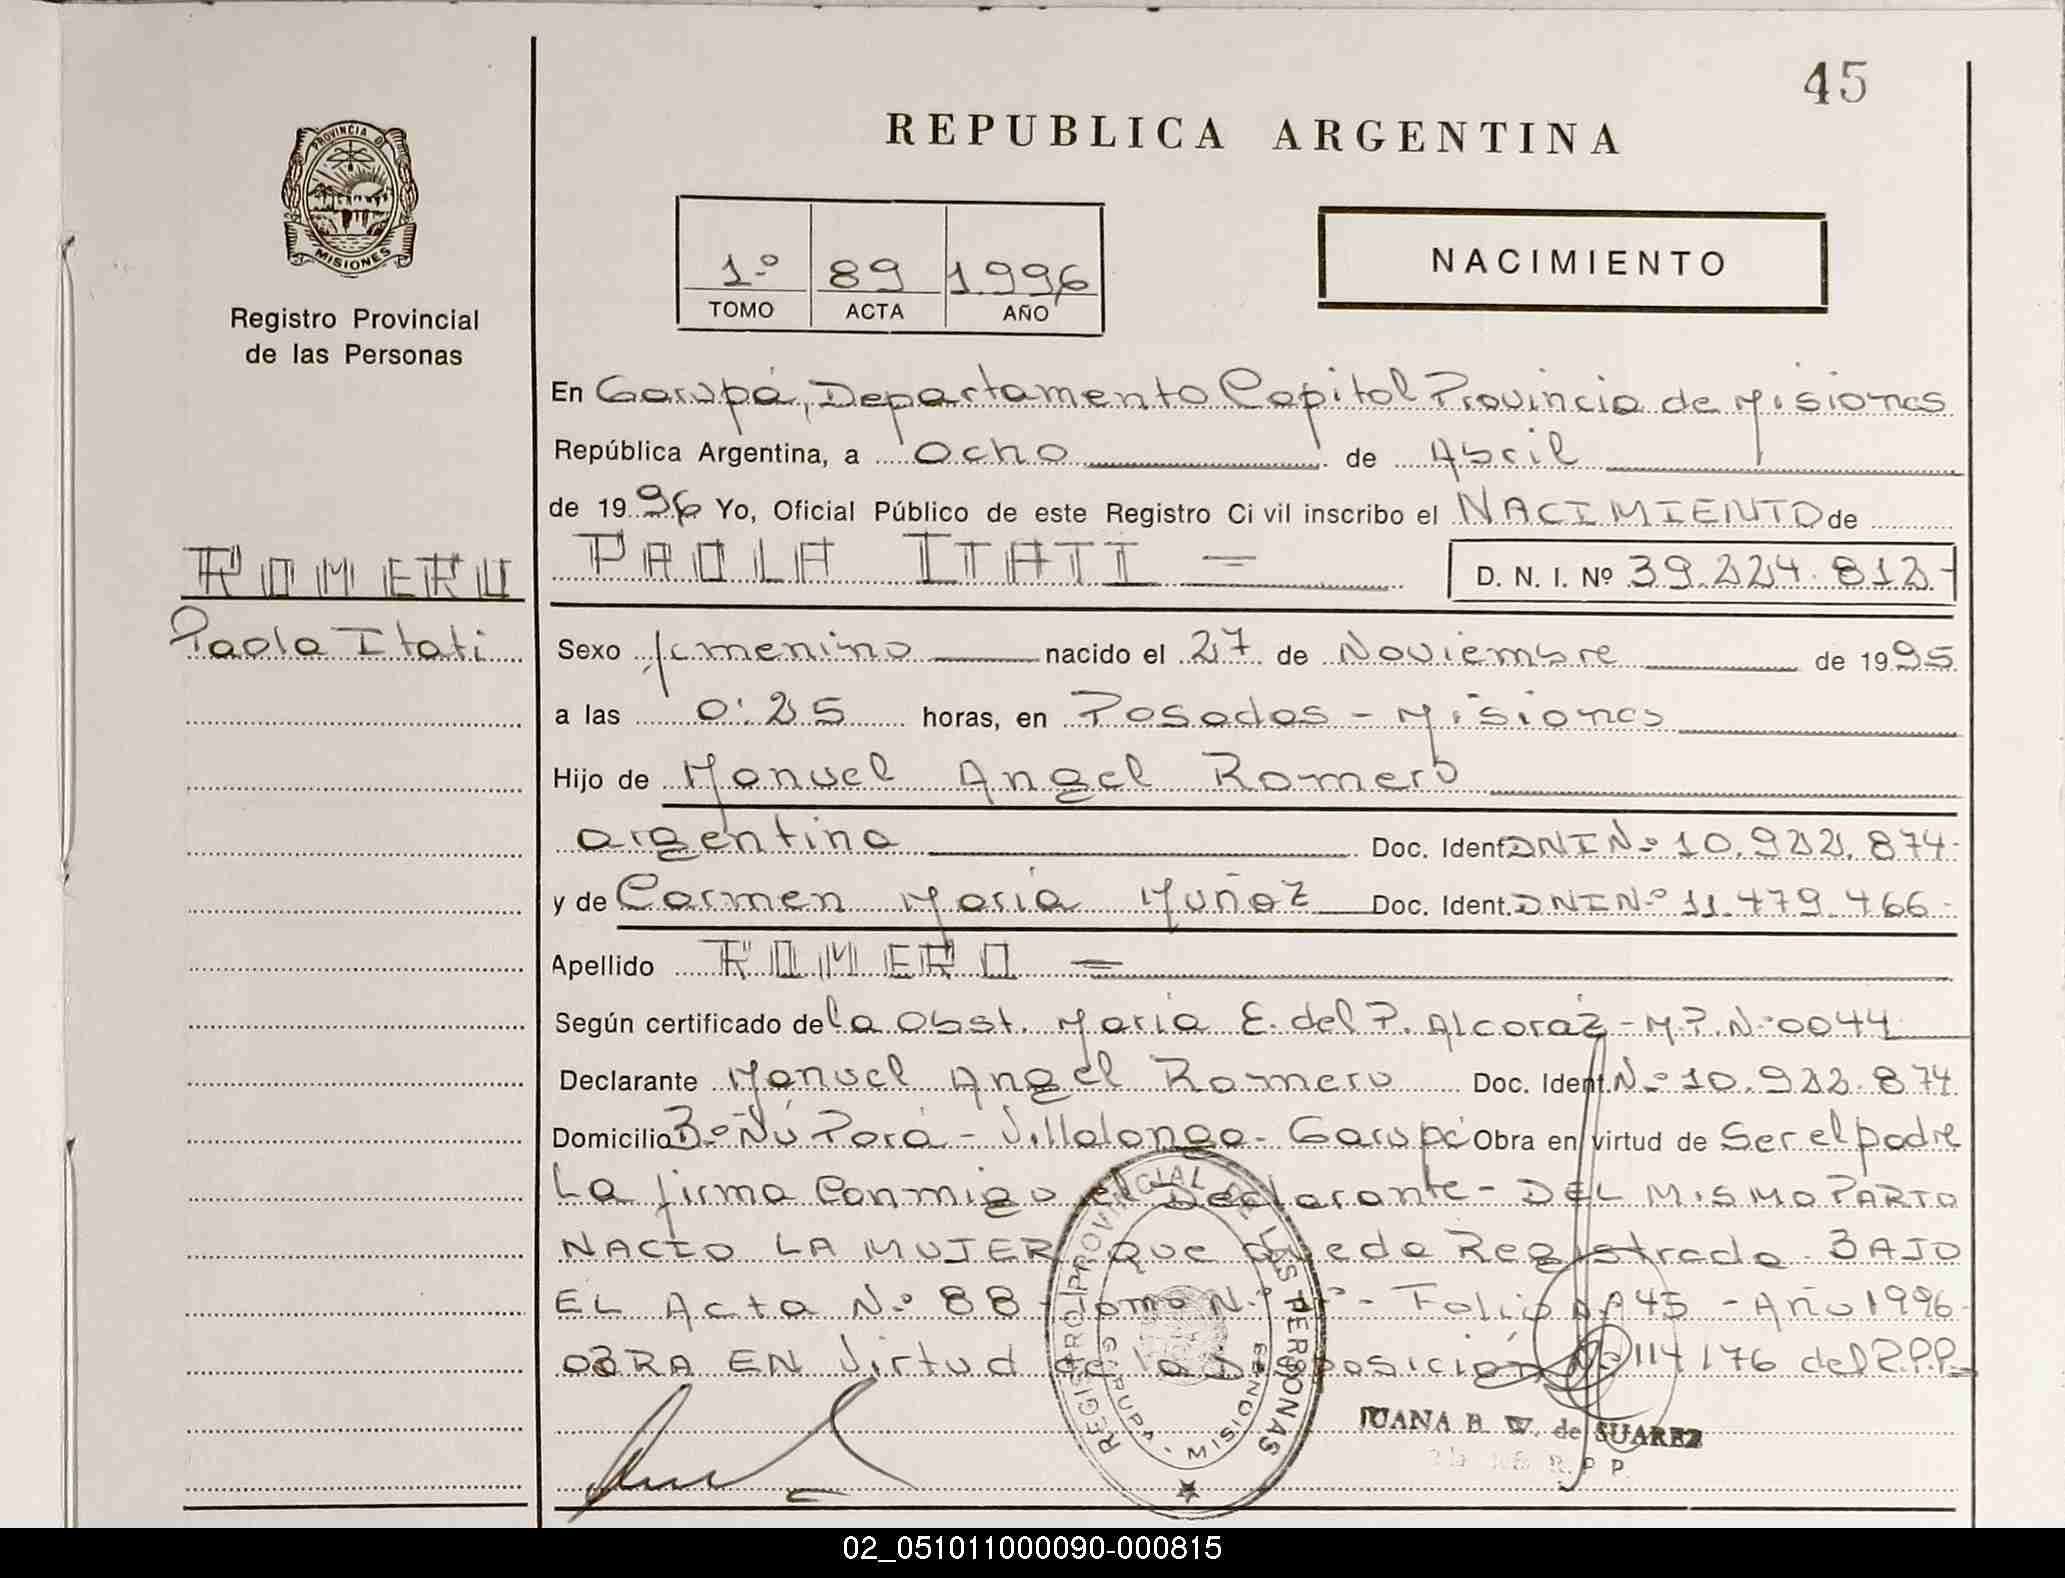 45
REPUBLICA ARGENTINA
PROVINCIA D
MISIONES
Registro Provincial
de las Personas
1º 89 1996
TOMO ACTA AÑO
NACIMIENTO
En Garupá, Departamento Capital Provincia de Misiones
República Argentina, a Ocho de Abril
de 1996 Yo, Oficial Público de este Registro Civil inscribo el NACIMIENTO de
ROMERO
PAOLA ITATI = D. N. I. Nº 39.224.812-
Paola Itati
Sexo femenino nacido el 27 de Noviembre de 1995
a las 0:25 horas, en Posadas - Misiones
Hijo de Manuel Angel Romero
argentina Doc. Ident. DNI Nº 10.922.874-
y de Carmen María Muñoz Doc. Ident. DNI Nº 11.479.466-
Apellido ROMERO =
Según certificado de la Obst. María E. del P. Alcoráz - M.P. Nº 0044
Declarante Manuel Angel Romero Doc. Ident. Nº 10.922.874
Domicilio Bº Ñú Porá - Villalonga - Garupá Obra en virtud de Ser el padre
La firma Conmigo el Declarante - DEL MISMO PARTO
NACIO LA MUJER que queda Registrada BAJO
EL Acta Nº 88 - Tomo Nº 1º - Folio Nº 45 - Año 1996-
OBRA EN Virtud de la Disposición Nº 114/76 del R.P.P.
REGISTRO PROVINCIAL DE LAS PERSONAS
GARUPA - MISIONES
JUANA B. W. de SUAREZ
R. P. P.
02_051011000090-000815